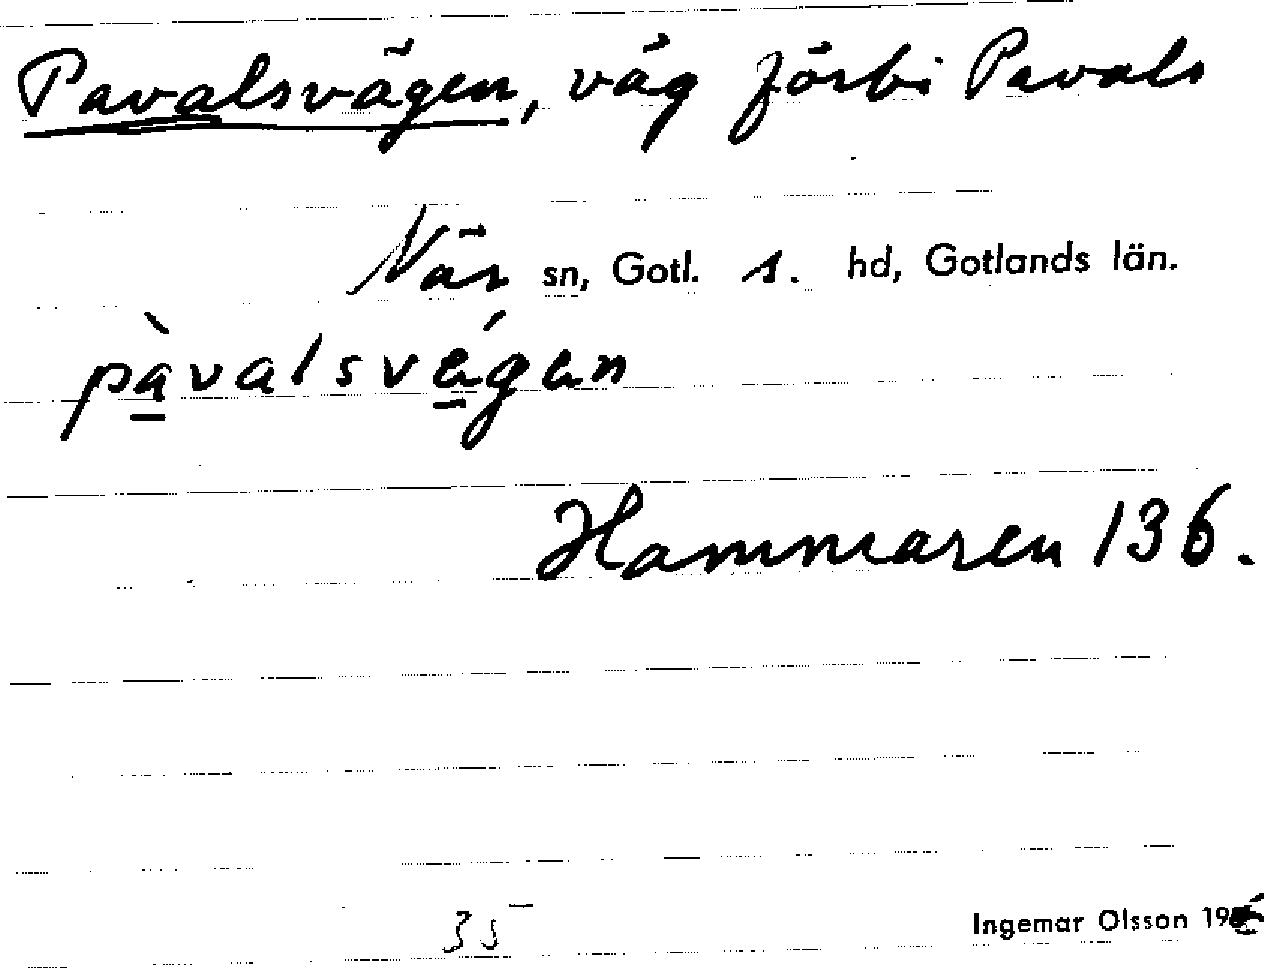 Pavalsvägen, väg förbi Pavals
När sn, Gotl. s. hd, Gotlands län.
pàvalsvǽgen
Hammaren 136.
35
Ingemar Olsson 19